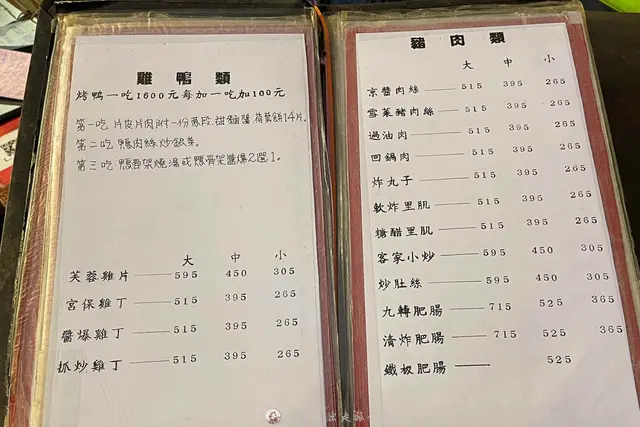 雞鴨類
烤鴨一吃1600元每加一吃加100元
第一吃 片皮片肉附一份蔥段.甜麵醬.荷葉餅14片.
第二吃 鴨肉絲炒銀芽.
第三吃 鴨骨架燒湯或鴨骨架醬爆2選1.
大 中 小
芙蓉雞片 595 450 305
宮保雞丁 515 395 265
醬爆雞丁 515 395 265
抓炒雞丁 515 395 265
豬肉類
大 中 小
京醬肉絲 515 395 265
雪菜豬肉絲 515 395 265
過油肉 515 395 265
回鍋肉 515 395 265
炸丸子 515 395 265
軟炸里肌 515 395 265
糖醋里肌 515 395 265
客家小炒 595 450 305
炒肚絲 595 450 305
九轉肥腸 715 525 365
清炸肥腸 715 525 365
鐵板肥腸 525